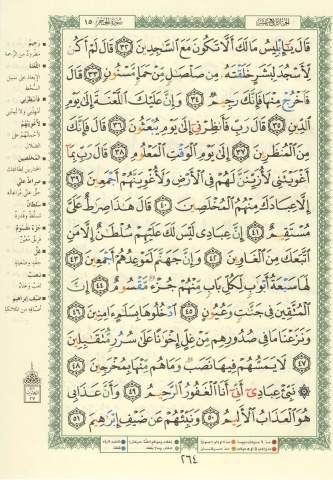 الجزء الرابع عشر
سورة الحجر ١٥
قَالَ يَٰٓإِبۡلِيسُ مَا لَكَ أَلَّا تَكُونَ مَعَ ٱلسَّٰجِدِينَ ٣٢ قَالَ لَمۡ أَكُن
لِّأَسۡجُدَ لِبَشَرٍ خَلَقۡتَهُۥ مِن صَلۡصَٰلٖ مِّنۡ حَمَإٖ مَّسۡنُونٖ ٣٣ قَالَ
فَٱخۡرُجۡ مِنۡهَا فَإِنَّكَ رَجِيمٞ ٣٤ وَإِنَّ عَلَيۡكَ ٱللَّعۡنَةَ إِلَىٰ يَوۡمِ
ٱلدِّينِ ٣٥ قَالَ رَبِّ فَأَنظِرۡنِيٓ إِلَىٰ يَوۡمِ يُبۡعَثُونَ ٣٦ قَالَ فَإِنَّكَ
مِنَ ٱلۡمُنظَرِينَ ٣٧ إِلَىٰ يَوۡمِ ٱلۡوَقۡتِ ٱلۡمَعۡلُومِ ٣٨ قَالَ رَبِّ بِمَآ
أَغۡوَيۡتَنِي لَأُزَيِّنَنَّ لَهُمۡ فِي ٱلۡأَرۡضِ وَلَأُغۡوِيَنَّهُمۡ أَجۡمَعِينَ ٣٩
إِلَّا عِبَادَكَ مِنۡهُمُ ٱلۡمُخۡلَصِينَ ٤٠ قَالَ هَٰذَا صِرَٰطٌ عَلَيَّ
مُسۡتَقِيمٌ ٤١ إِنَّ عِبَادِي لَيۡسَ لَكَ عَلَيۡهِمۡ سُلۡطَٰنٌ إِلَّا مَنِ
ٱتَّبَعَكَ مِنَ ٱلۡغَاوِينَ ٤٢ وَإِنَّ جَهَنَّمَ لَمَوۡعِدُهُمۡ أَجۡمَعِينَ ٤٣
لَهَا سَبۡعَةُ أَبۡوَٰبٖ لِّكُلِّ بَابٖ مِّنۡهُمۡ جُزۡءٞ مَّقۡسُومٌ ٤٤ إِنَّ
ٱلۡمُتَّقِينَ فِي جَنَّٰتٖ وَعُيُونٍ ٤٥ ٱدۡخُلُوهَا بِسَلَٰمٍ ءَامِنِينَ ٤٦
وَنَزَعۡنَا مَا فِي صُدُورِهِم مِّنۡ غِلٍّ إِخۡوَٰنًا عَلَىٰ سُرُرٖ مُّتَقَٰبِلِينَ
٤٧ لَا يَمَسُّهُمۡ فِيهَا نَصَبٞ وَمَا هُم مِّنۡهَا بِمُخۡرَجِينَ ٤٨
نَبِّئۡ عِبَادِيٓ أَنِّيٓ أَنَا ٱلۡغَفُورُ ٱلرَّحِيمُ ٤٩ وَأَنَّ عَذَابِي
هُوَ ٱلۡعَذَابُ ٱلۡأَلِيمُ ٥٠ وَنَبِّئۡهُمۡ عَن ضَيۡفِ إِبۡرَٰهِيمَ ٥١
٢٦٤
رجيم
اللعنة
فأنظرني
لأغوينهم
المخلصين
صراط علي
سلطان
جزء مقسوم
غل
نصب
ضيف إبراهيم